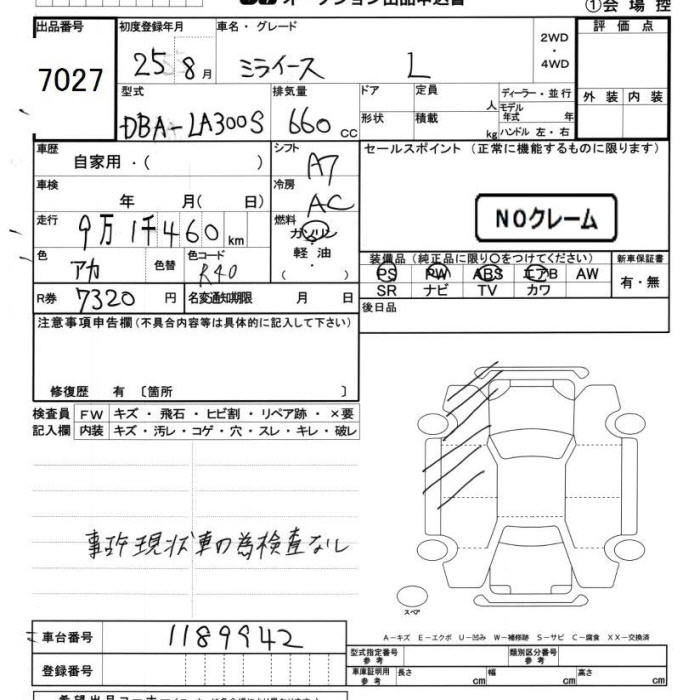 オークション出品申込書
①会場控
出品番号 7027
初度登録年月 25 8月
車名・グレード ミライース L
2WD・4WD
評価点
外装 内装
型式 DBA-LA300S
排気量 660cc
ドア 形状
定員 人
積載 kg
ディーラー・並行
モデル年式 年
ハンドル 左・右
車歴 自家用・( )
シフト A7
セールスポイント(正常に機能するものに限ります)
NOクレーム
車検 年 月( 日)
冷房 AC
走行 9万1千460km
燃料 ガソリン 軽油 ( ・ )
色 アカ 色替
色コード R40
装備品(純正品に限り〇をつけてください)
PS PW ABS エアB AW
SR ナビ TV カワ
新車保証書 有・無
R券 7320円
名変通知期限 月 日
後日品
注意事項申告欄(不具合内容等は具体的に記入して下さい)
修復歴 有〔箇所 〕
検査員記入欄
FW キズ・飛石・ヒビ割・リペア跡・×要
内装 キズ・汚レ・コゲ・穴・スレ・キレ・破レ
事故現状車の為検査なし
スペア
A-キズ E-エクボ U-凹み W-補修跡 S-サビ C-腐食 XX-交換済
車台番号 1189942
登録番号
型式指定番号 参考
類別区分番号 参考
車庫証明用 参考 長さ cm 幅 cm 高さ cm